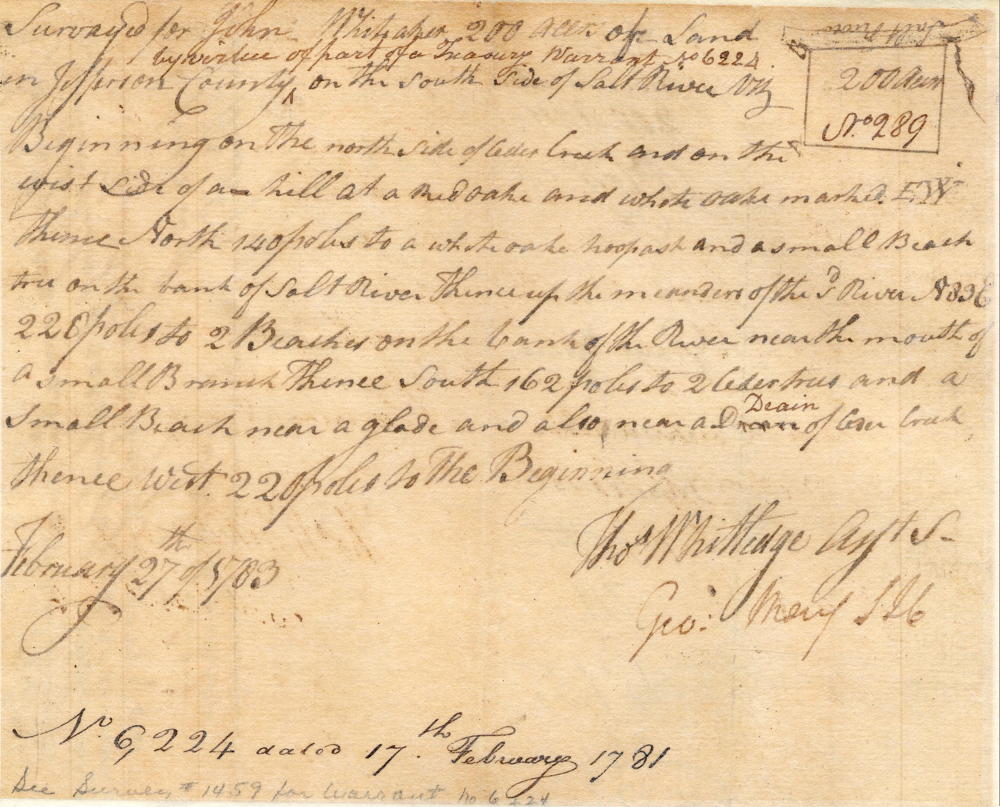 Surveyed for John Whitaker 200 acers of Land
by virtue of part of a Treasury Warrant No 6224
in Jefferson County ^ on the South Side of Salt River Viz
Salt River
200 Acers
No 289
Beginning on the north Side of Ceder Creek and on the
wist Side of a hill at a Red oake and white oake marked EW
Thence North 140 poles to a white oake hoopash and a small Beach
tree on the bank of Salt River Thence up the meanders of the Sd River N83E
226 poles to 2 Beaches on the bank of the River near the mouth of
a small Branch Thence South 162 poles to 2 Ceder trees and a
Small Beach near a glade and also near a Drain of Ceder Creek
Drain
thence West 220 poles to the Beginning
Thos Whitledge Asst S-
February 27th of 1783
Geo: May S J C
No 6,224 dated 17th February 1781
See Survey # 1459 for Warrant no 6224